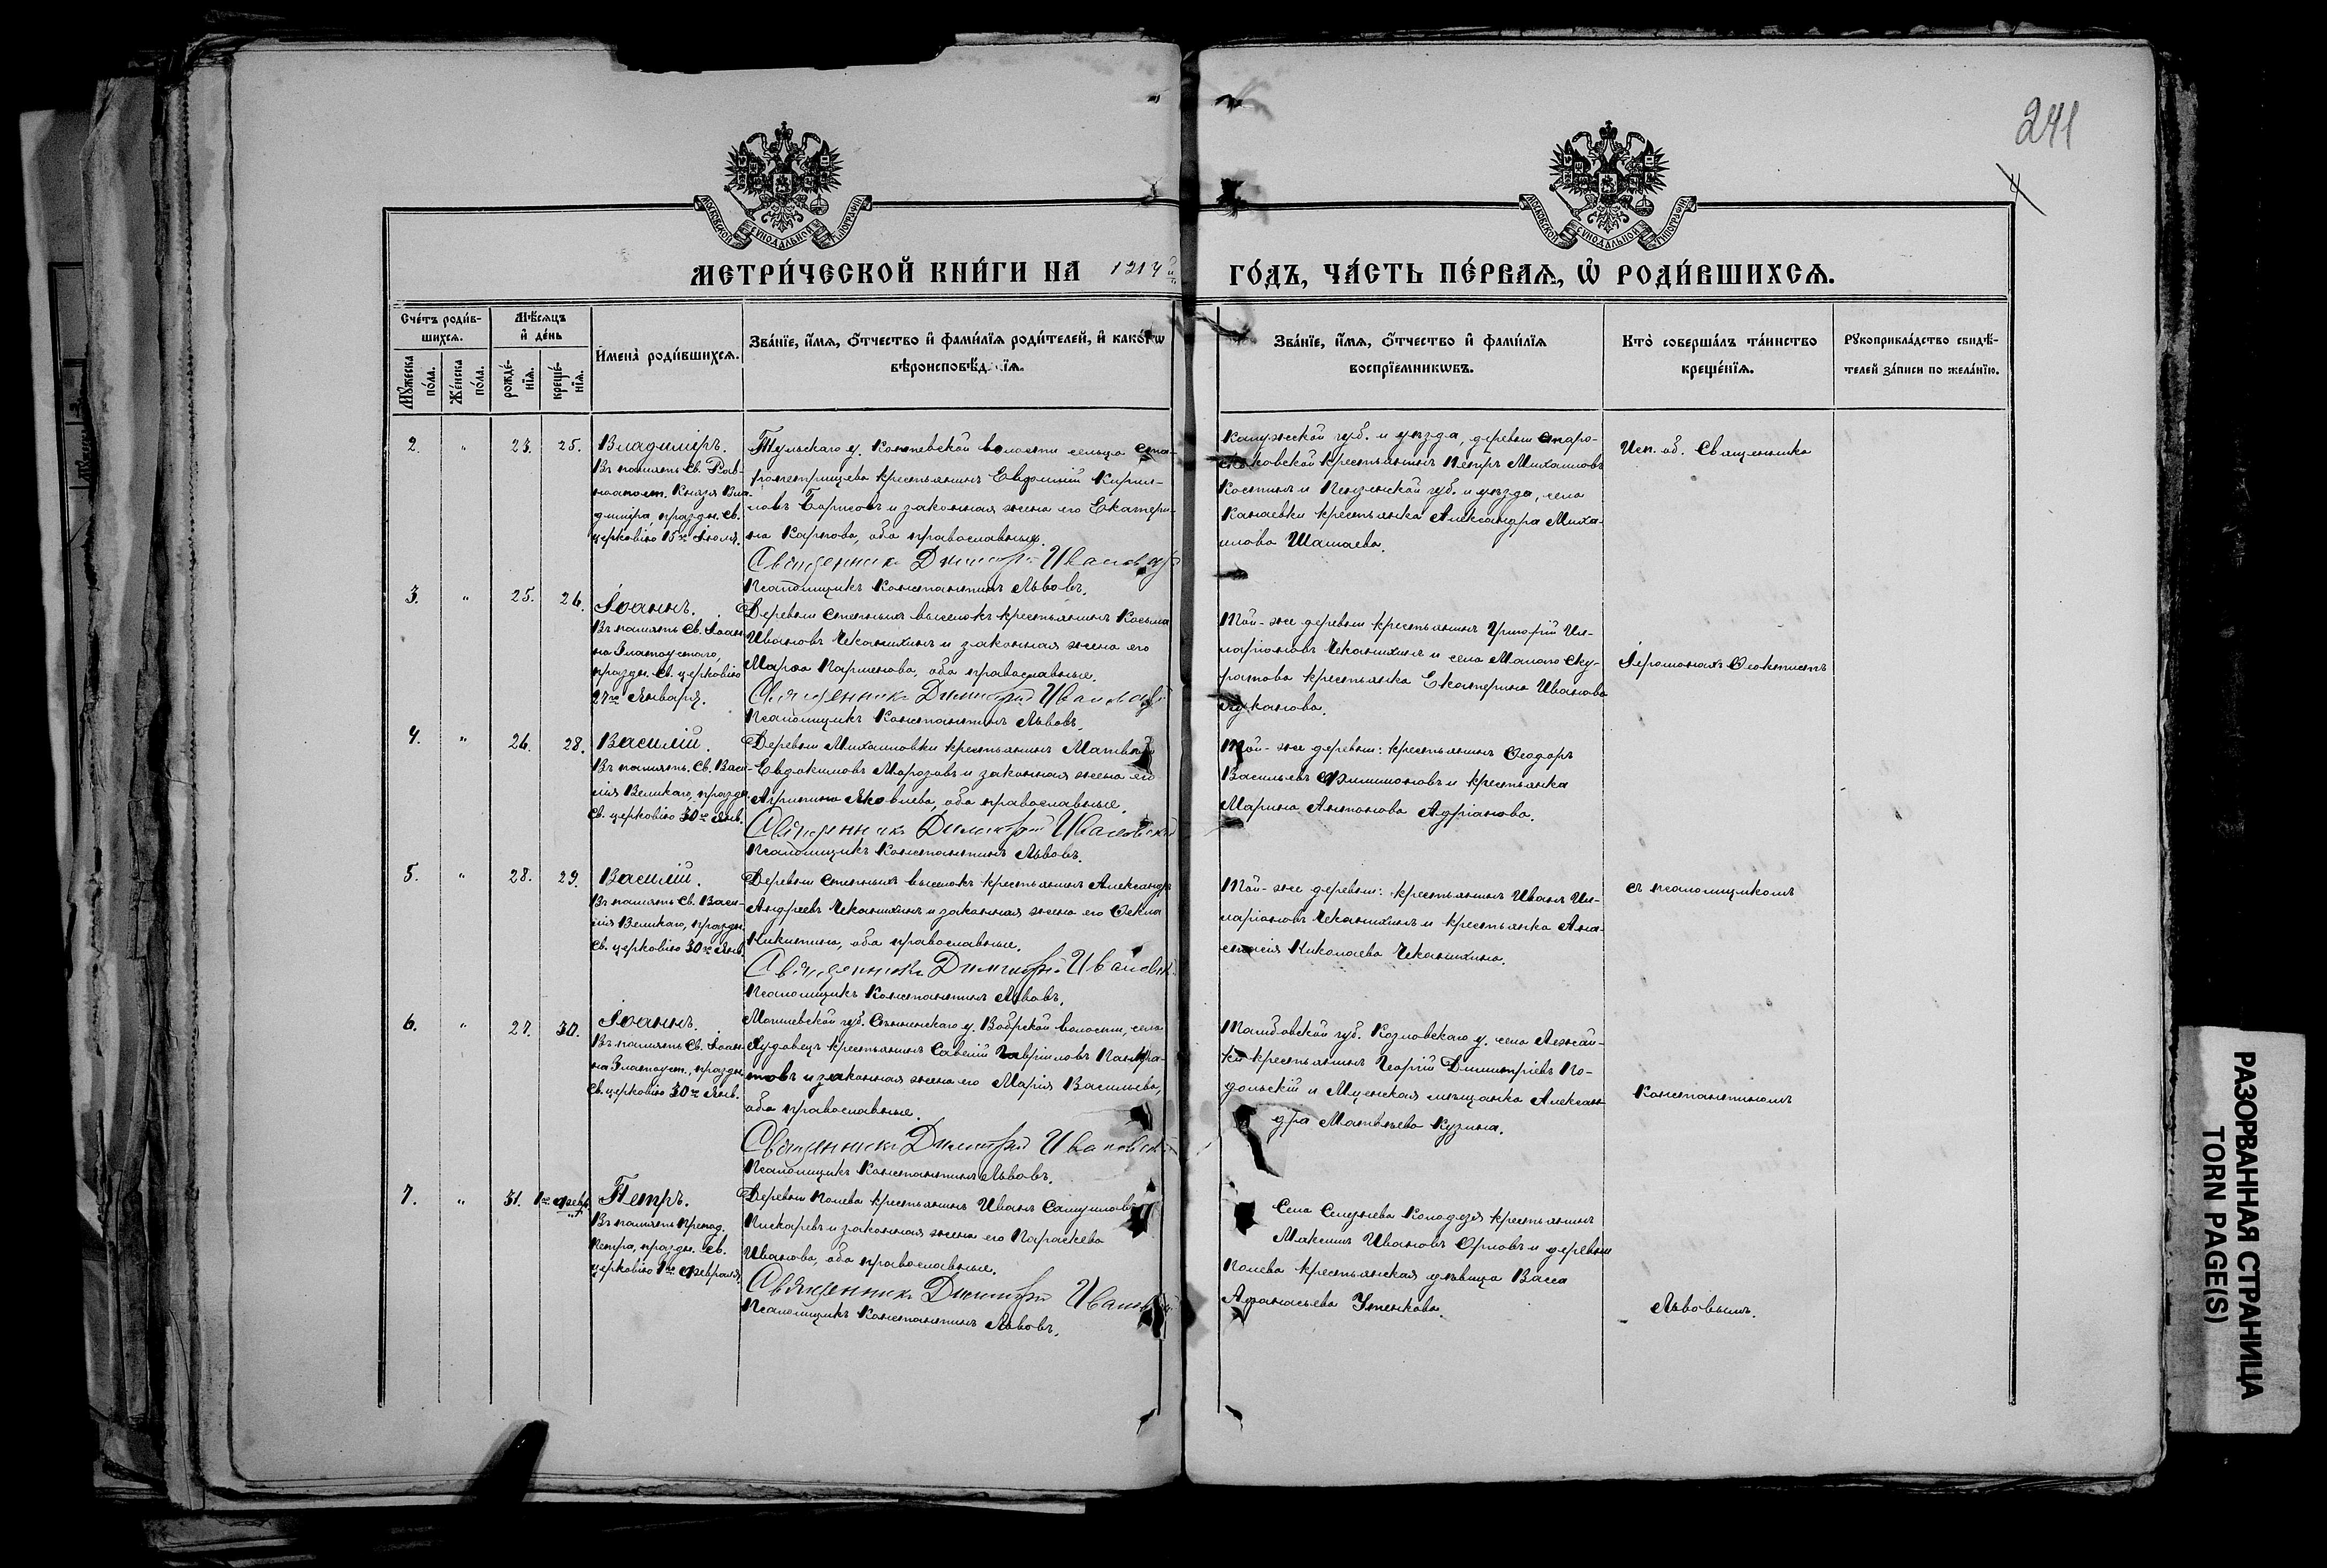 241
4
МОСКОВСКОЙ СѴНОДАЛЬНОЙ ТИПОГРАФІИ
МОСКОВСКОЙ СѴНОДАЛЬНОЙ ТИПОГРАФІИ
МЕТРИ́ЧЕСКОЙ КНИ́ГИ НА 1914 й
ГО́ДЪ, ЧА́СТЬ ПЕ́РВАѦ, Ѡ҆ РОДИ́ВШИХСѦ.
Сче́тъ роди́в-
шихсѧ.
Мꙋжеска
по́ла.
Же́нска
по́ла.
Мѣ́сѧцъ
и҆ де́нь
рожде́-
нїѧ.
креще́-
нїѧ.
И҆мена̀ роди́вшихсѧ.
Зва́нїе, и҆́мѧ, ѻ҆́тчество и҆ фами́лїѧ роди́телей, и҆ како́гѡ
вѣроисповѣ́д нїѧ.
Зва́нїе, и҆́мѧ, ѻ҆́тчество и҆ фами́лїѧ
воспрїе́мникѡвъ.
Кто̀ соверша́лъ та́инство
креще́нїѧ.
Рꙋкоприкла́дство свидѣ́-
телей за́писи по жела́нїю.
2. " 23. 25. Владиміръ.
Въ память Св. Рав-
ноапост. Князя Вла-
диміра, праздн. Св.
церковію 15го Іюля.
Тульскаго у. волости сельца
крестьянинъ Евфимій Кирил-
ловъ Борисовъ и законная жена его Екатери-
на Карпова, оба православные.
Священникъ Димитрій Ивановскій
Псаломщикъ Константинъ Львовъ.
Калужской губ. и уѣзда, деревни Андро-
новской крестьянинъ Петръ Михаиловъ
Костинъ и Пензенской губ. и уѣзда, села
Канаевки крестьянка Александра Миха-
илова Шашаева.
Исп. об. Священника
3. " 25. 26. Іоаннъ.
Въ память Св. Іоан-
на Златоустаго,
праздн. Св. церковію
27го Января.
Деревни Степныхъ выселокъ крестьянинъ Косьма
Ивановъ Чеканихинъ и законная жена его
Марѳа Парменова, оба православные.
Священникъ Димитрій Ивановскій
Псаломщикъ Константинъ Львовъ.
Той-же деревни крестьянинъ Григорій Ил-
ларіоновъ Чеканихинъ и села Малаго Ску-
ратова крестьянка Екатерина Иванова
Луканова.
Іеромонахъ Ѳеоктистъ
4. " 26. 28. Василій.
Въ память Св. Васи-
лія Великаго, праздн.
Св. церковію 30го Янв.
Деревни Михаиловки крестьянинъ Матвѣй
Евдокимовъ Морозовъ и законная жена его
Агрипина Яковлева, оба православные.
Священникъ Димитрій Ивановскій
Псаломщикъ Константинъ Львовъ.
Той-же деревни: крестьянинъ Ѳеодоръ
Васильевъ Филимоновъ и крестьянка
Марина Антонова Адріанова.
5. " 28. 29. Василій.
Въ память Св. Васи-
лія Великаго, праздн.
Св. церковію 30го Янв.
Деревни Степныхъ выселокъ крестьянинъ Александръ
Андреевъ Чеканихинъ и законная жена его Ѳекла
Никитина, оба православные.
Священникъ Димитрій Ивановскій
Псаломщикъ Константинъ Львовъ.
Той-же деревни: крестьянинъ Иванъ Ил-
ларіоновъ Чеканихинъ и крестьянка Ана-
стасія Николаева Чеканихина.
съ псаломщикомъ
6. " 27. 30. Іоаннъ.
Въ память Св. Іоан-
на Златоуст., праздн.
Св. церковію 30го Янв.
Могилевской губ. Сѣнненскаго у. Бобрской волости, села
Худовецъ крестьянинъ Савелій Гавріиловъ Панкра-
товъ и законная жена его Марія Васильева,
оба православные.
Священникъ Димитрій Ивановскій
Псаломщикъ Константинъ Львовъ.
Тамбовской губ. Козловскаго у. села Лежай-
ки крестьянинъ Георгій Димитріевъ По-
дольскій и Мценская мѣщанка Алексан-
дра Матвѣева Кузина.
Константиномъ
7. " 31. 1го Февр. Петръ.
Въ память Препод.
Петра, праздн. Св.
церковію 1го Февраля.
Деревни Полева крестьянинъ Иванъ Самуиловъ
Пискаревъ и законная жена его Параскева
Иванова, оба православные.
Священникъ Димитрій Ивановскій
Псаломщикъ Константинъ Львовъ.
Села Селезнева Колодезя крестьянинъ
Максимъ Ивановъ Орловъ и деревни
Полева крестьянская дѣвица Васса
Аѳанасьева Утенкова.
Львовымъ.
РАЗОРВАННАЯ СТРАНИЦА
TORN PAGE(S)